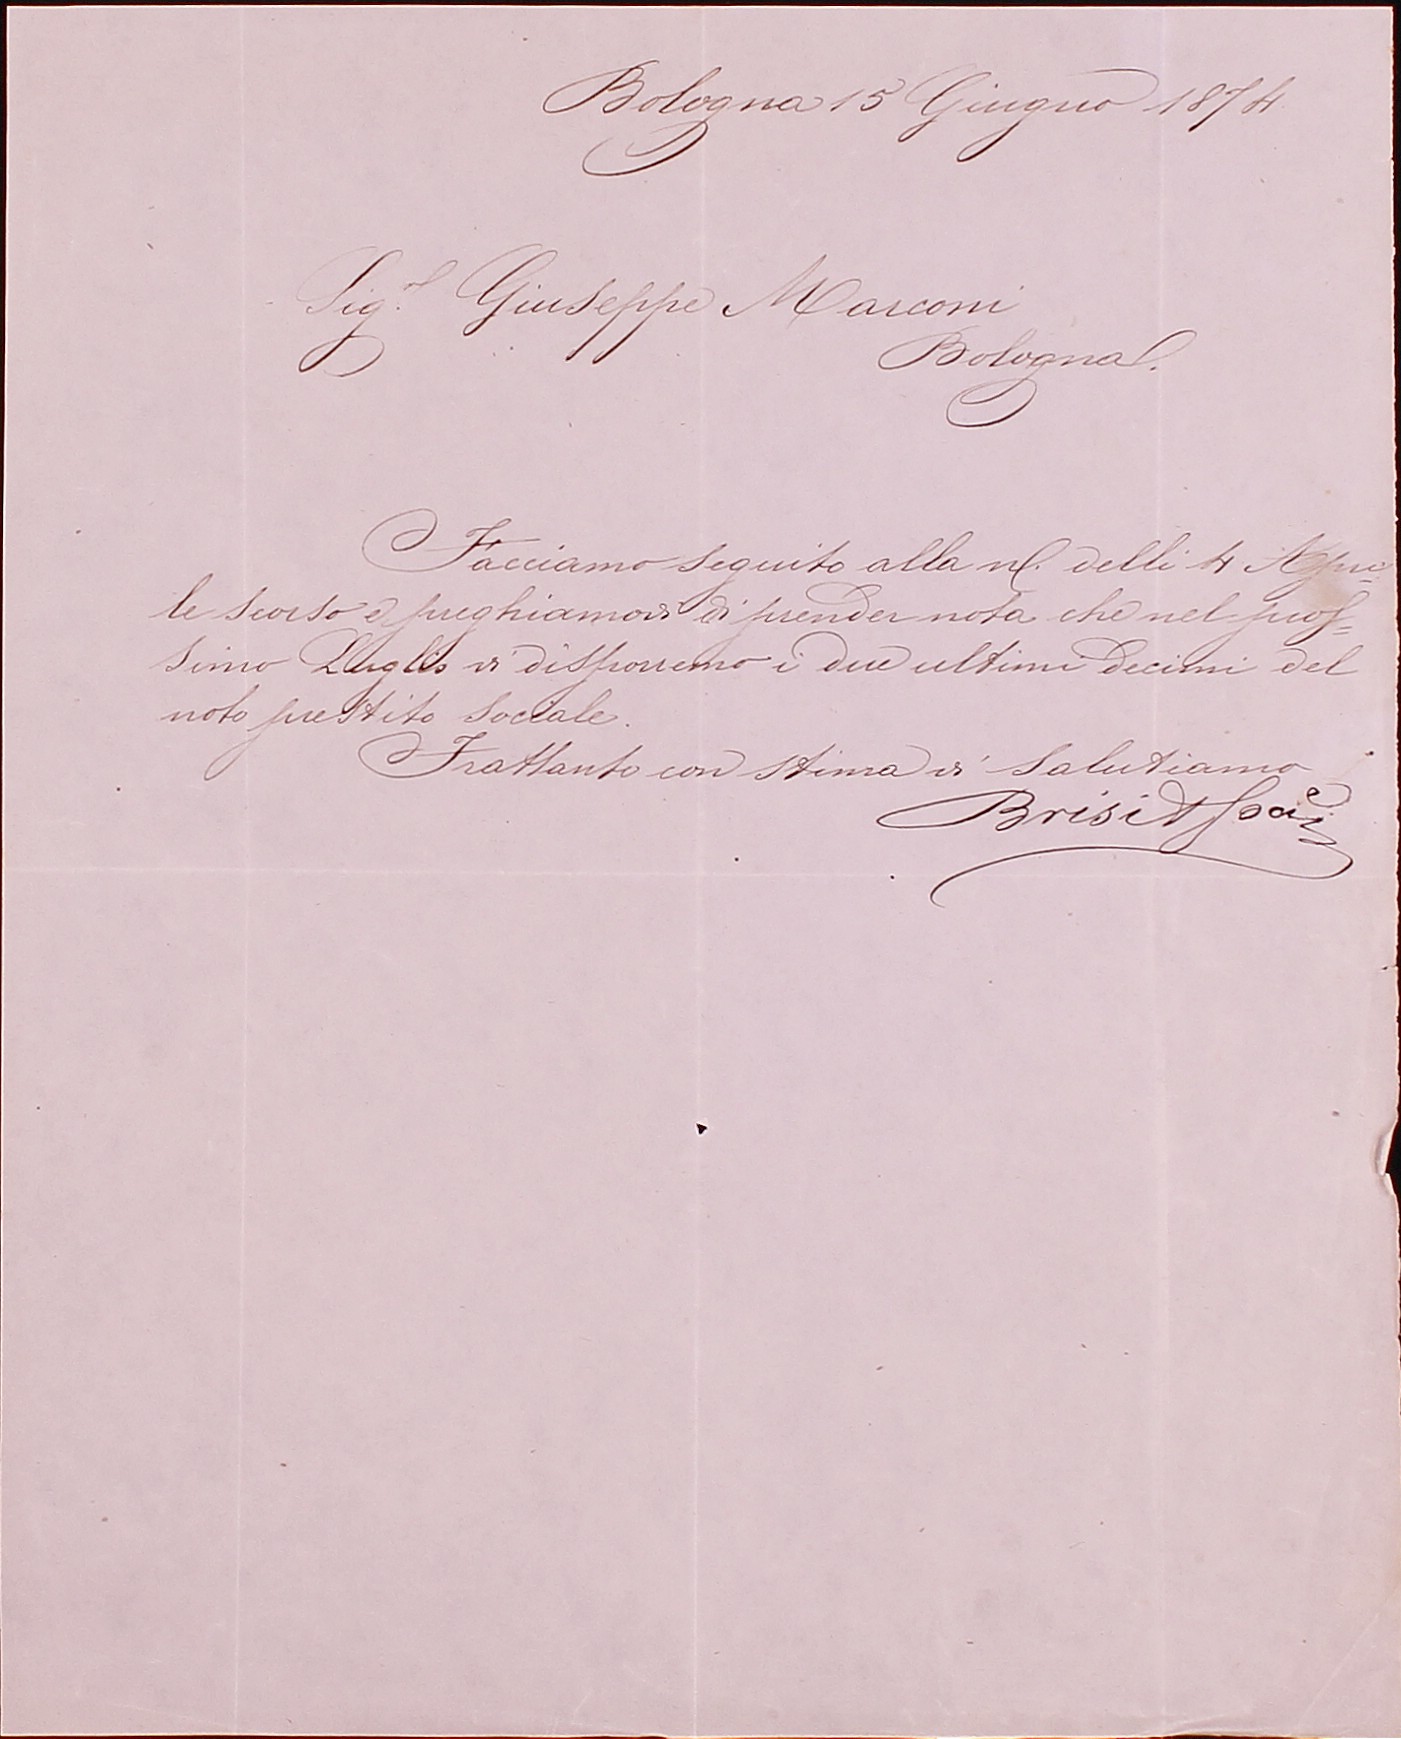 Bologna 15 Giugno 1874
Sig.r Giuseppe Marconi
Bologna.
Facciamo seguito alla n/. delli 4 Apri=
le scorso e preghiamovi di prender nota che nel pros=
simo Luglio vi disporremo i due ultimi decimi del
noto prestito sociale.
Frattanto con stima vi salutiamo
Brisi